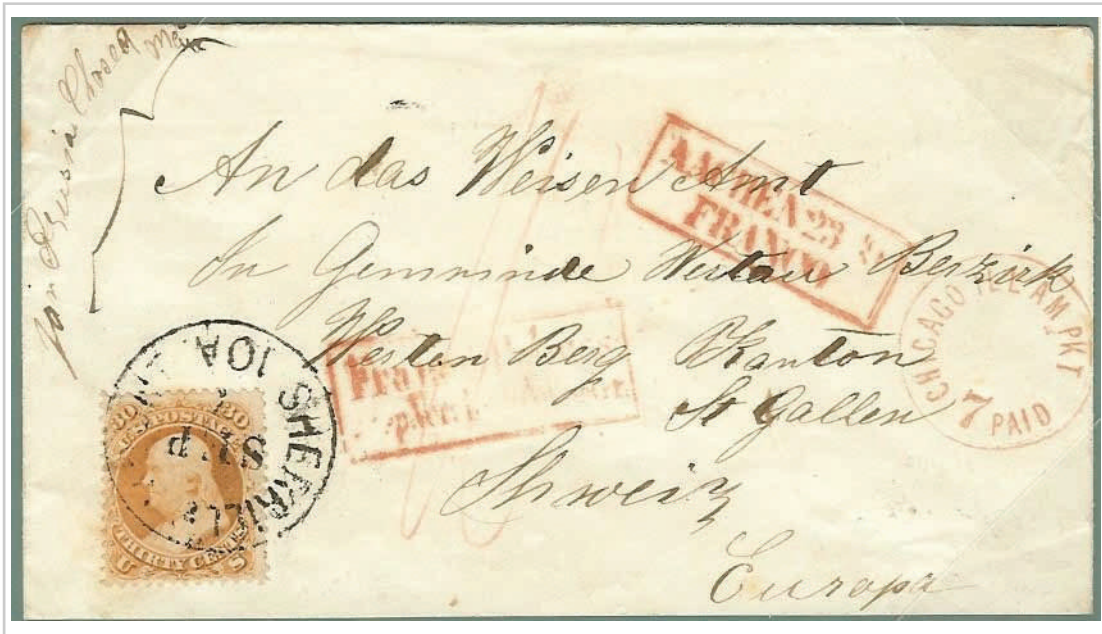 Closed Mail
An das Weisen Amt
In Gemminde Westau Berzirk
Westen Berg Kanton
St Gallen
Schweiz
Europa
AACHEN 23
FRANCO
CHICAGO ILL AM PKT
7
PAID
Franco
SHERRILLS IOA
SEP
30 30
U.S. POSTAGE
THIRTY CENTS
U S